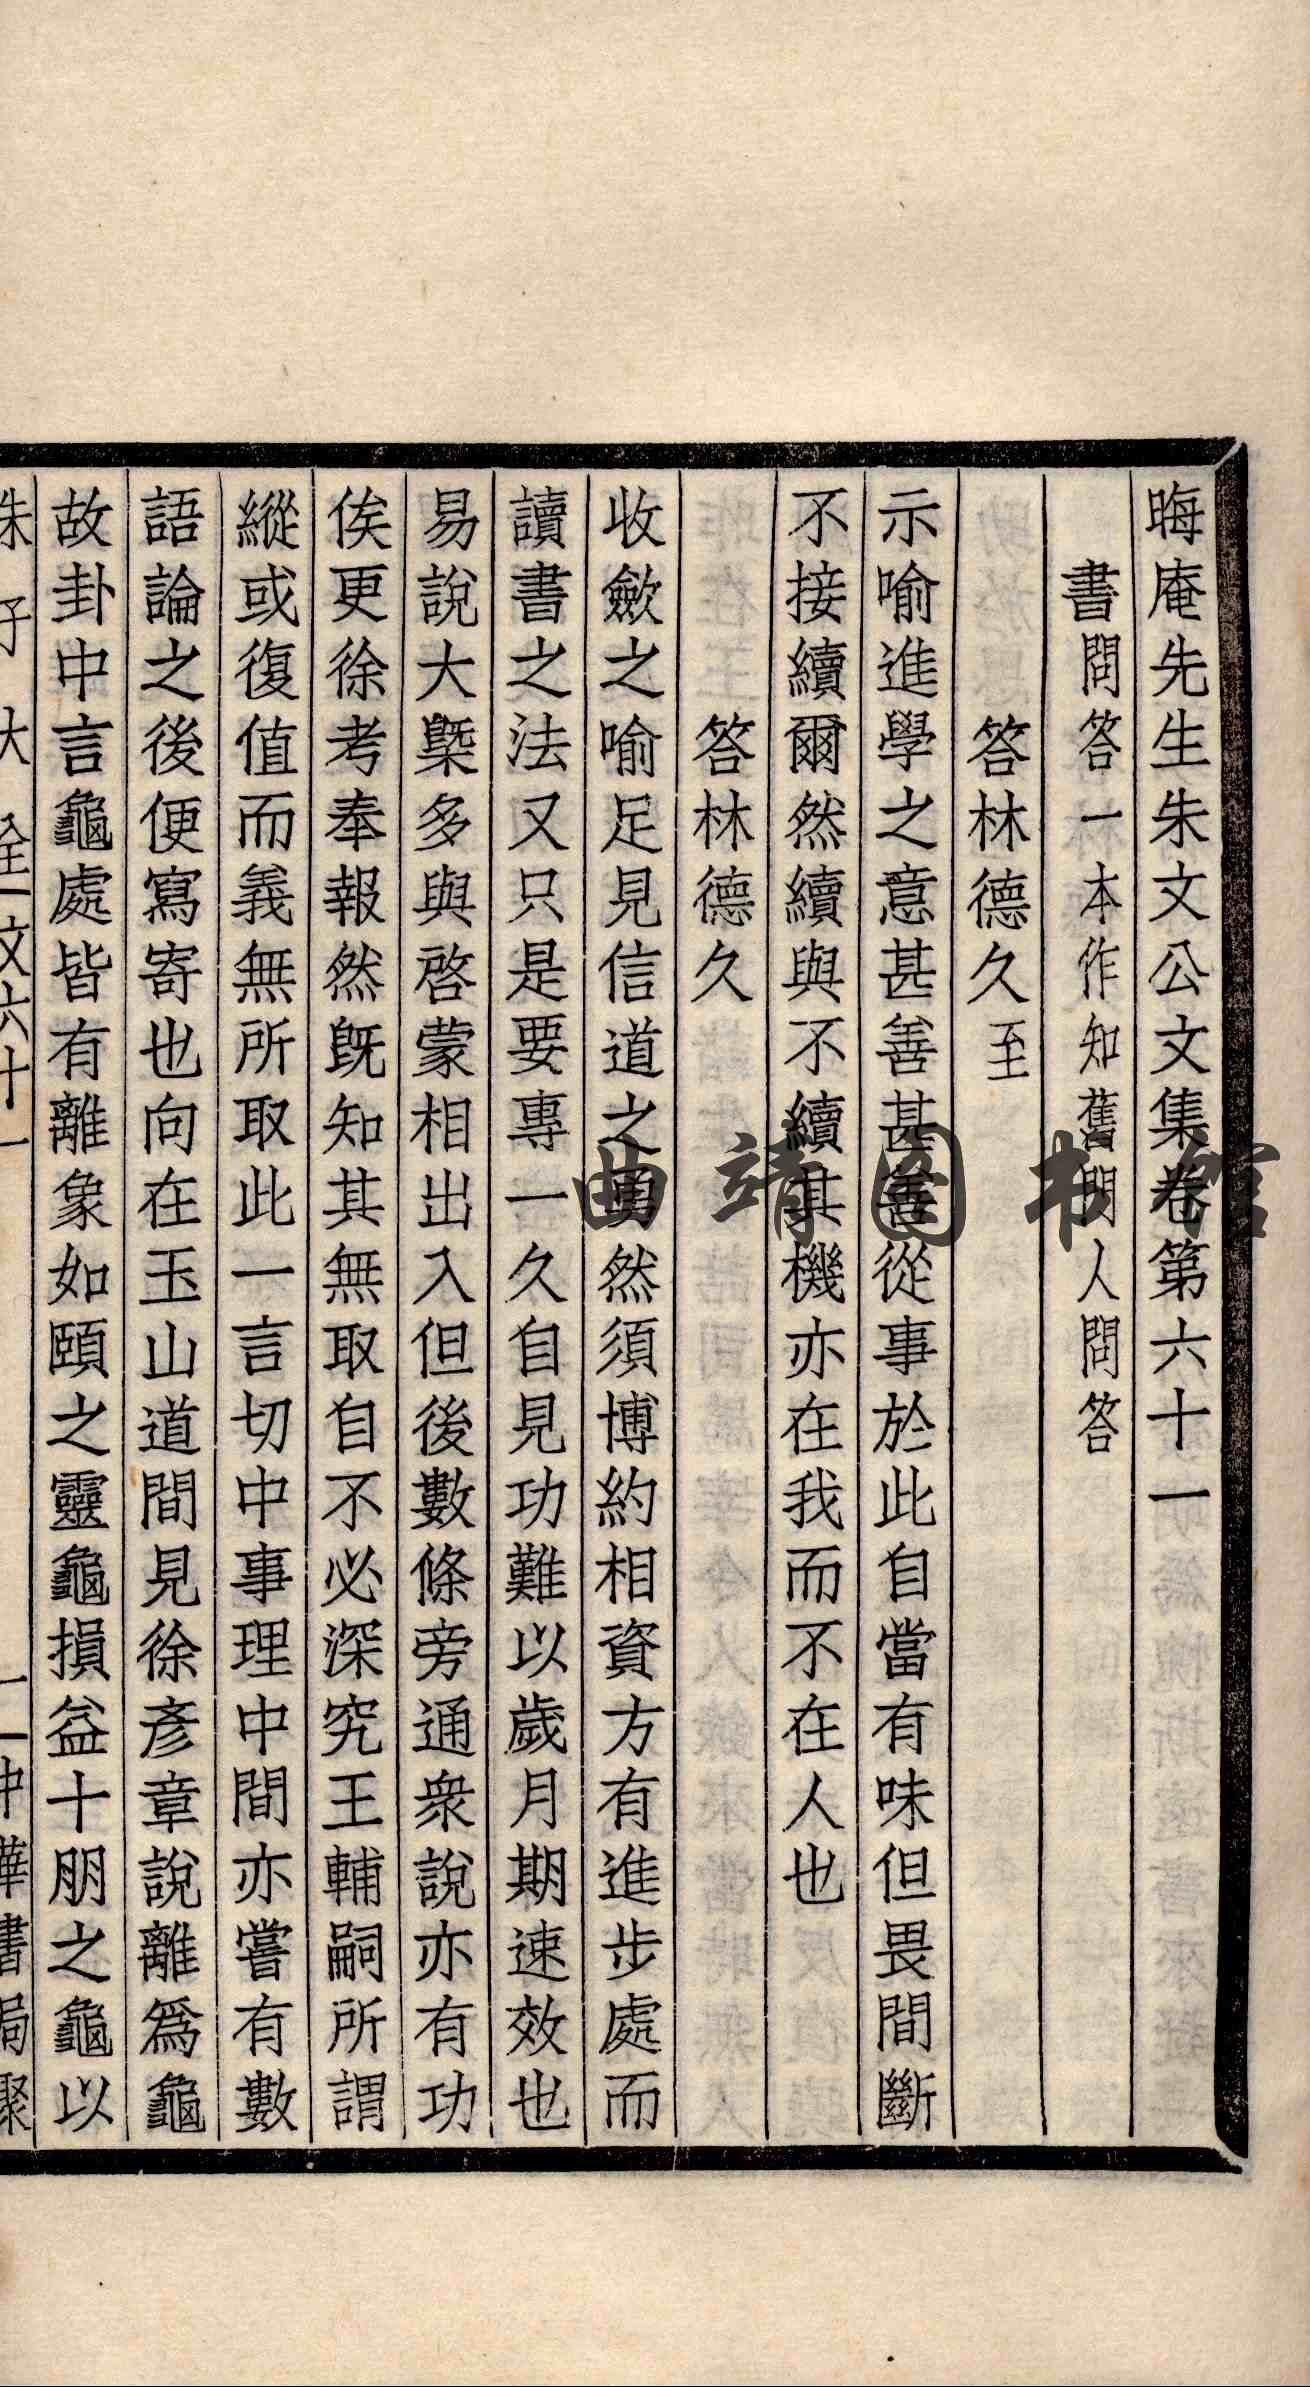 晦庵先生朱文公文集卷第六十一
書問答一本作知舊門人問答
答林德久至
示喻進學之意甚善甚善從事於此自當有味但畏間斷
不接續爾然續與不續其機亦在我而不在人也
答林德久
收歛之喻足見信道之勇然須博約相資方有進步處而
讀書之法又只是要專一久自見功難以歲月期速效也
易說大槩多與啓蒙相出入但後數條旁通衆說亦有功
俟更徐考奉報然旣知其無取自不必深究王輔嗣所謂
縱或復值而義無所取此一言切中事理中間亦嘗有數
語論之後便寫寄也向在玉山道間見徐彥章說離爲龜
故卦中言龜處皆有離象如頤之靈龜損益十朋之龜以
朱子大全 文六十一 一 中華書局聚
曲靖图书馆